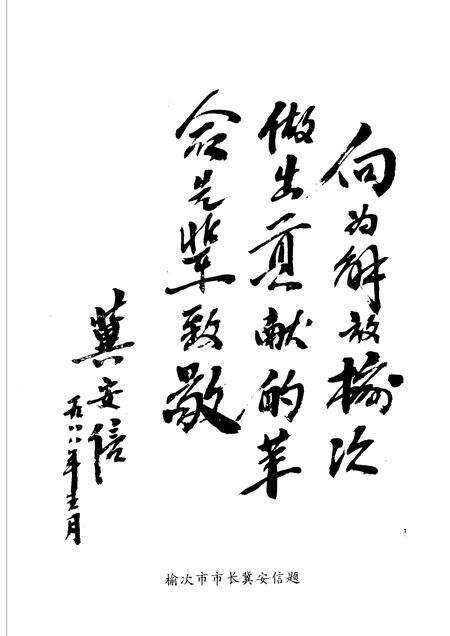 向为解放榆次
做出贡献的革
命先辈致敬
冀安信
一九八八年十二月
榆次市市长冀安信题